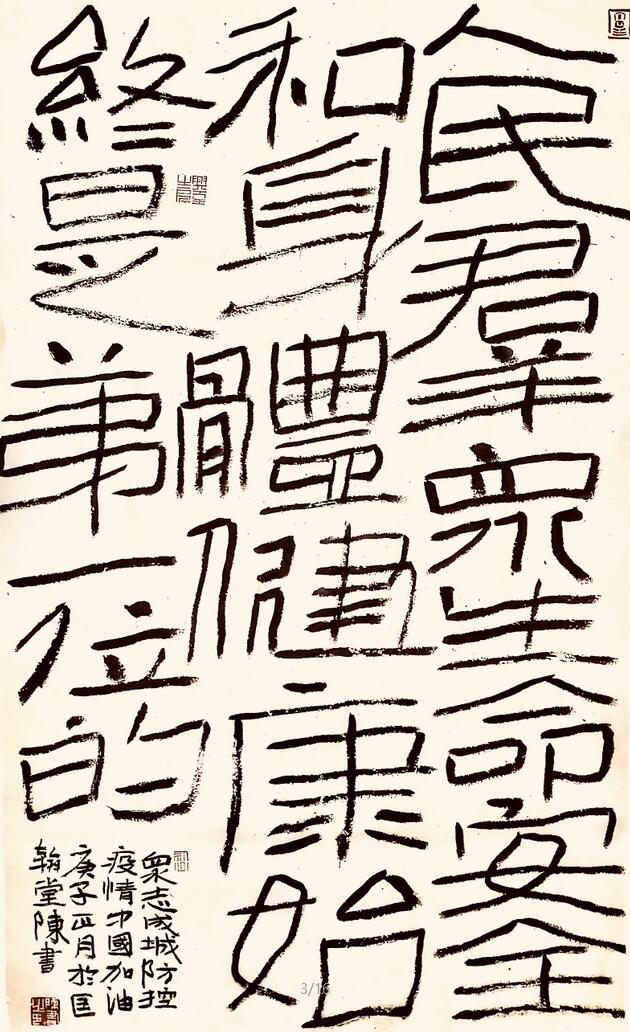 人民羣眾生命安全
和身體健康始
終是弟一位的
眾志成城防控
疫情中國加油
庚子正月於匡
翰堂陳書